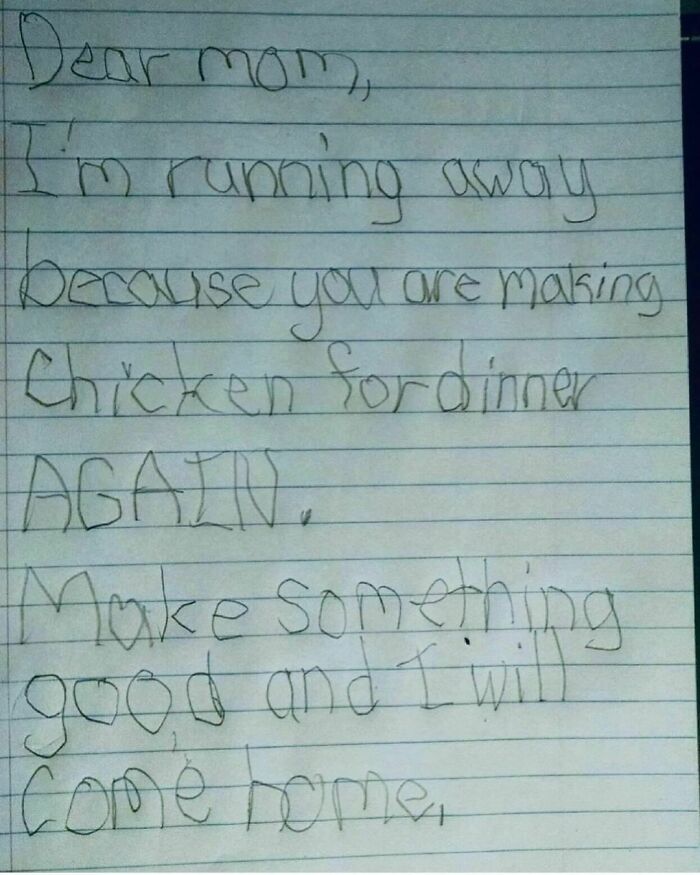 Dear mom,
I'm running away
because you are making
Chicken for dinner
AGAIN.
Make something
good and I will
come home.